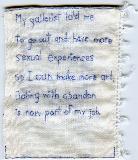 My gallerist told me
To go out and have more
sexual experiences
So I can make more art.
Doing with abandon
is now part of my job